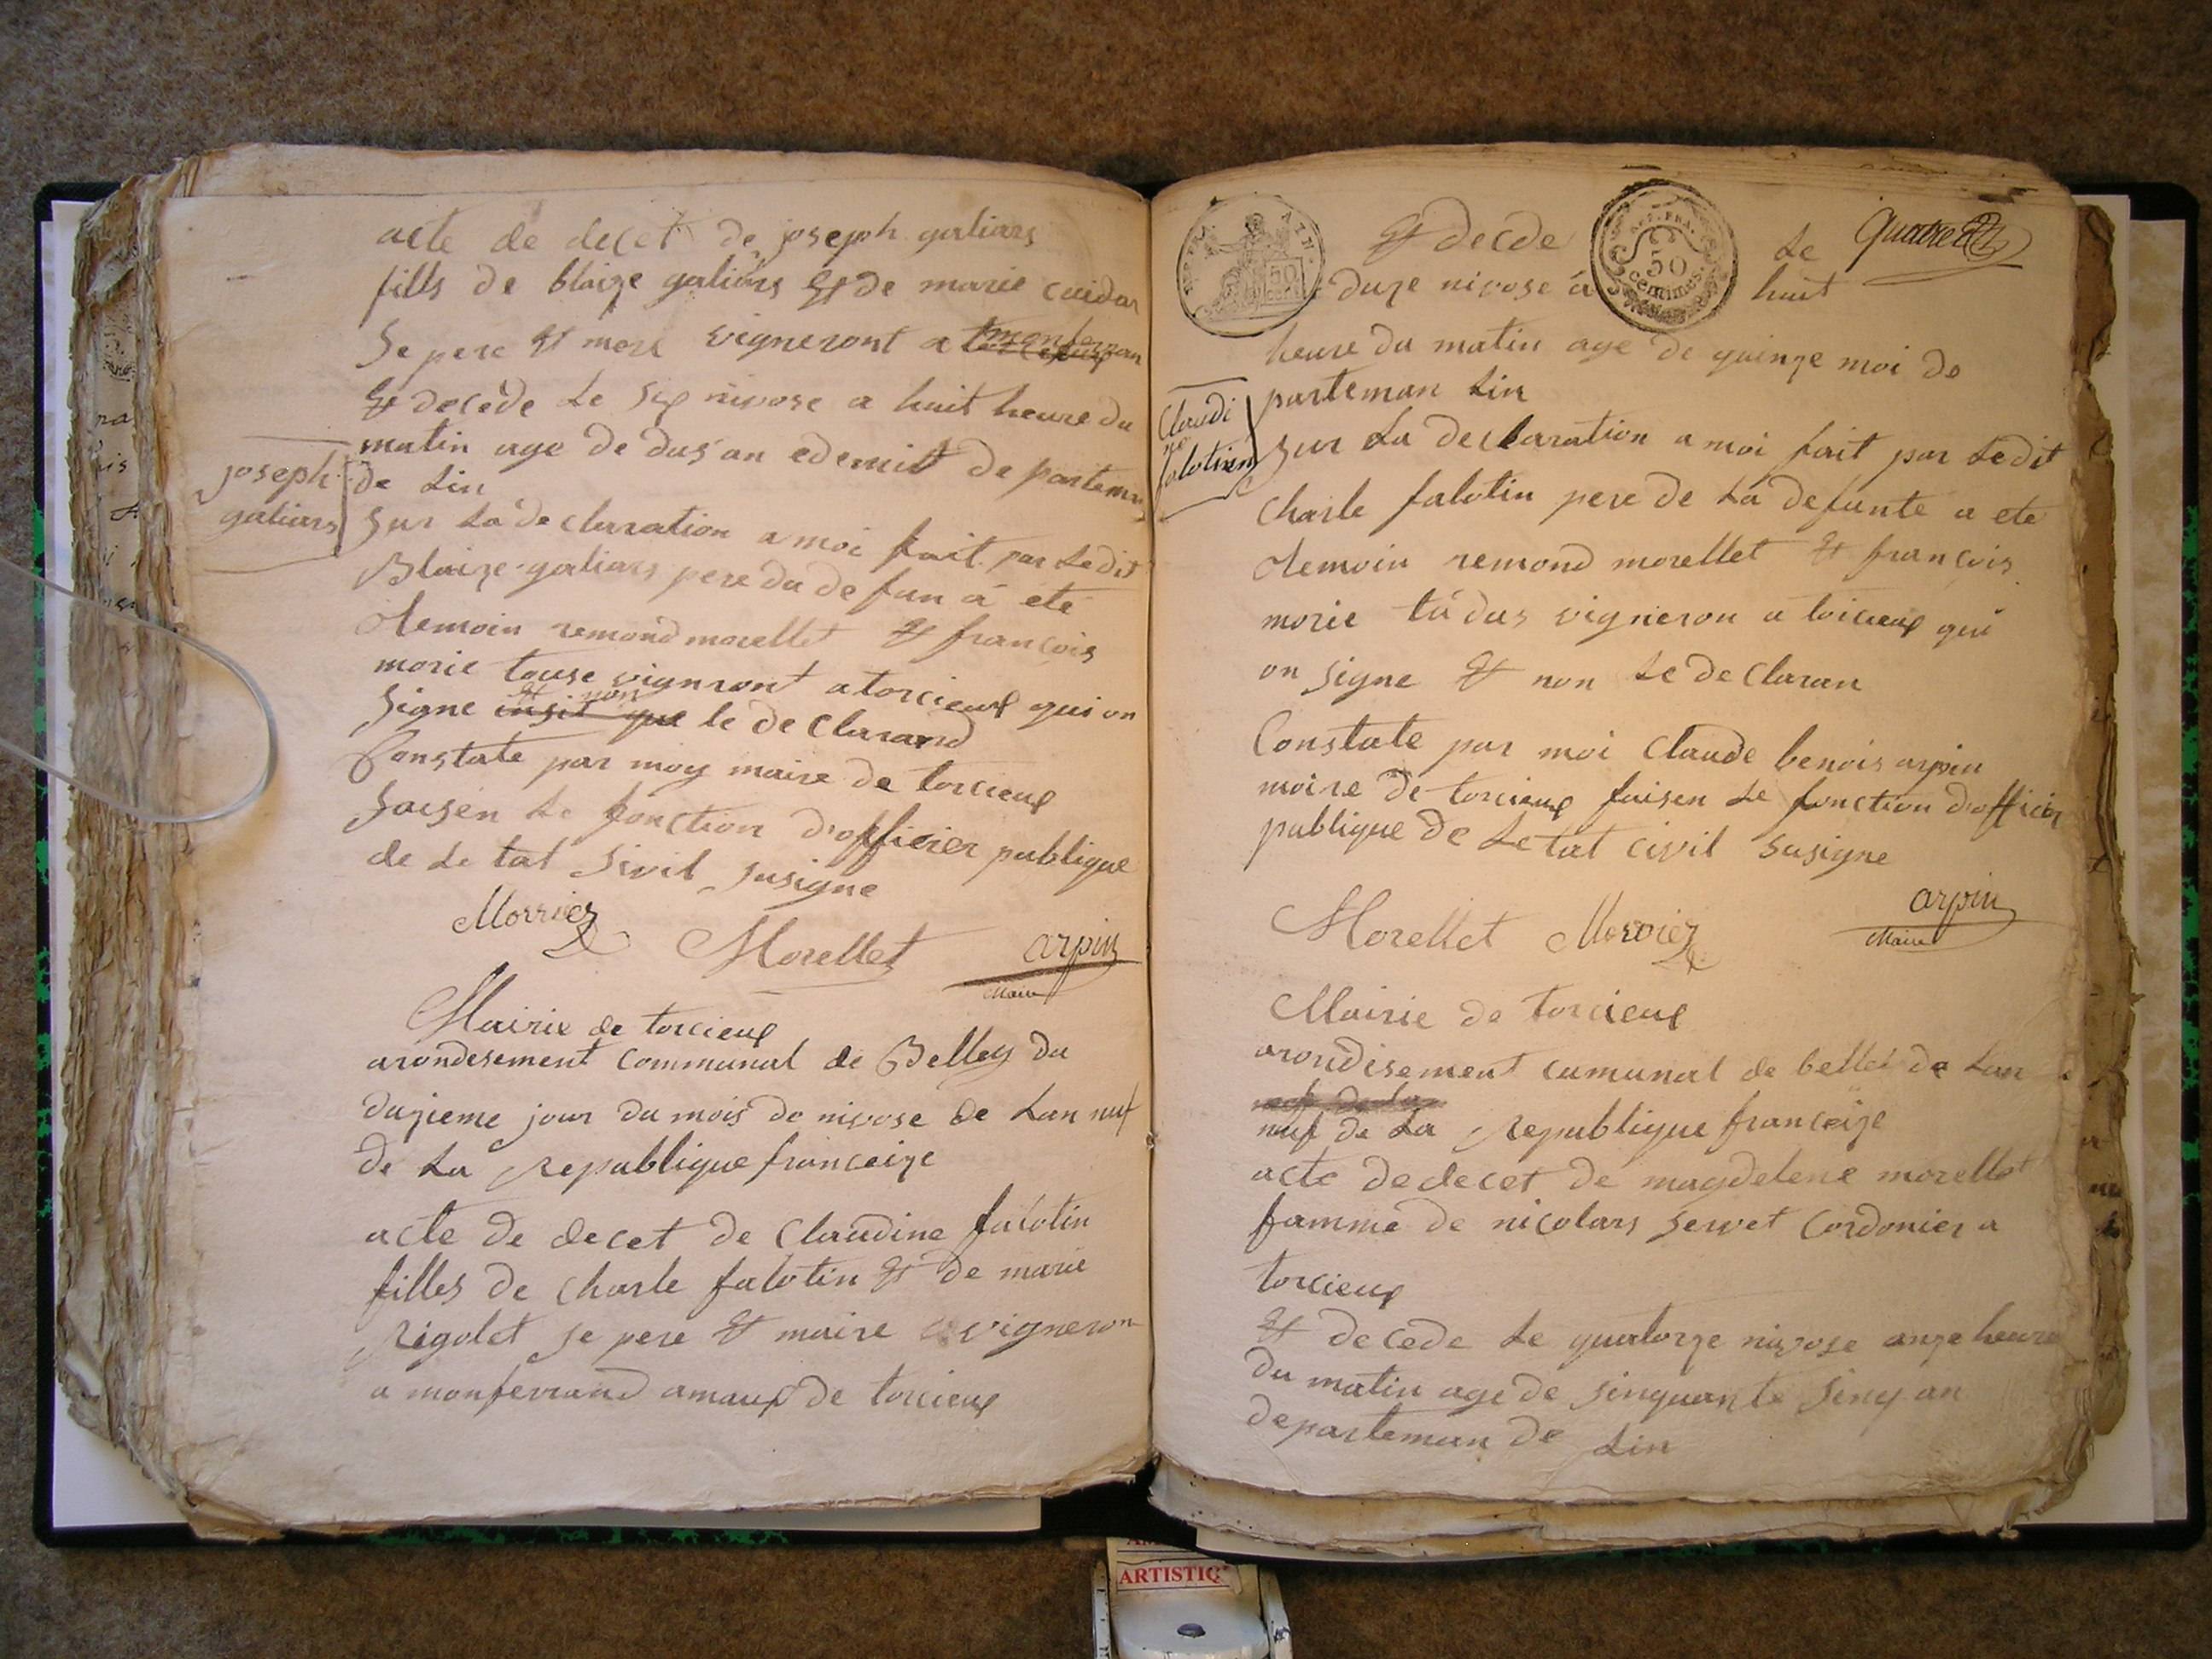 acte de decet de joseph galiars
fills de blaize galiars et de marie cuidar
se pere et mere vigneront a monferran
et decede le six nivose a huit heure du
matin age de dus an edemit de partemen
de Lin
joseph
galiars
sur La declaration a moi fait par Ledit
Blaize galiars pere du defun a ete
temoin remond morellet et francois
morie touse vignront a torcieux qui on
et non
signe insit que le de Clarand
Constate par moy maire de torcieux
faisen Le fonction d'officier publique
de Le tat sivil susigne
Morrier
Morellet
arpin
Maire
Mairie de torcieux
arondesement communal de Belley du
duzieme jour du mois de nivose de Lan nuf
de La republique franceize
acte de decet de Claudine falotin
filles de charle falotin et de marie
rigolet se pere et maire vigneron
a monferrand amaux de torcieux
et decde Le
Quatre
REP. FRA.
50
centimes
duze nivose à huit
heure du matin age de quinze moi de
parteman Lin
Claudi
ne
falotin
sur La declaration a moi fait par Ledit
charle falotin pere de La defunte a ete
temoin remond morellet et francois
morie tu dus vigneron a toicieux qui
on signe et non Le de Claran
Constate par moi Claude benois arpin
moire de torcieux faisen Le fonction d'officier
publique de Letat civil susigne
Morellet
Morrier
arpin
Maire
Mairie de torcieux
arondisement cumunal de bellei de Lan
nuf de La republique franceize
acte de decet de magdelene morellet
famme de nicolars servet Cordonier a
torcieux
et decede Le quatorze nivose onze heure
du matin age de sinquante sinq an
departeman de Lin
ARTISTIQ